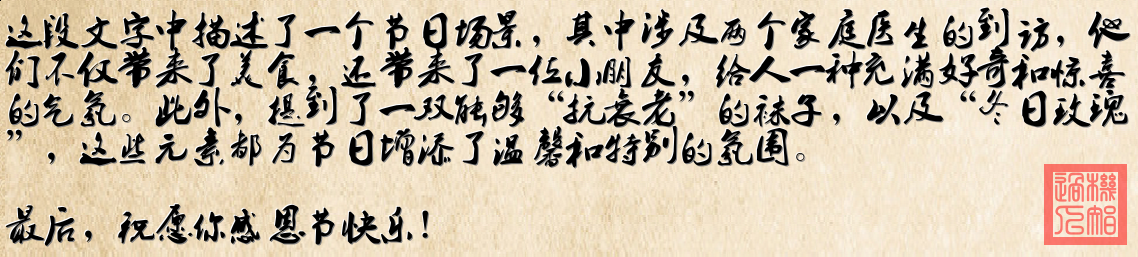 这段文字中描述了一个节日场景，其中涉及两个家庭医生的到访，他
们不仅带来了美食，还带来了一位小朋友，给人一种充满好奇和惊喜
的气氛。此外，提到了一双能够“抗衰老”的袜子，以及“冬日玫瑰
”，这些元素都为节日增添了温馨和特别的氛围。
最后，祝愿你感恩节快乐！